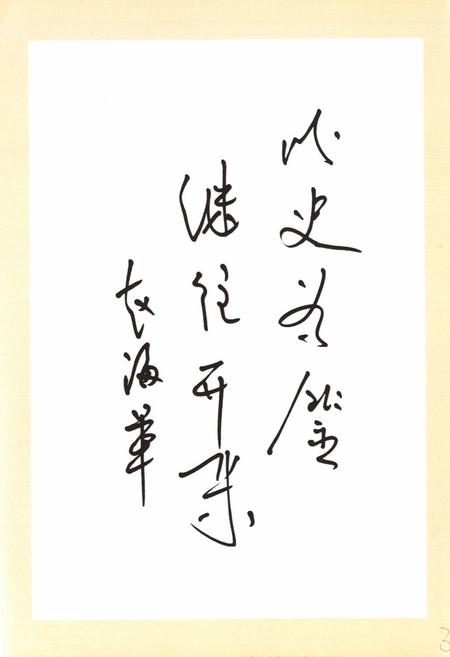 以史为鉴
继往开来
赵海军
3